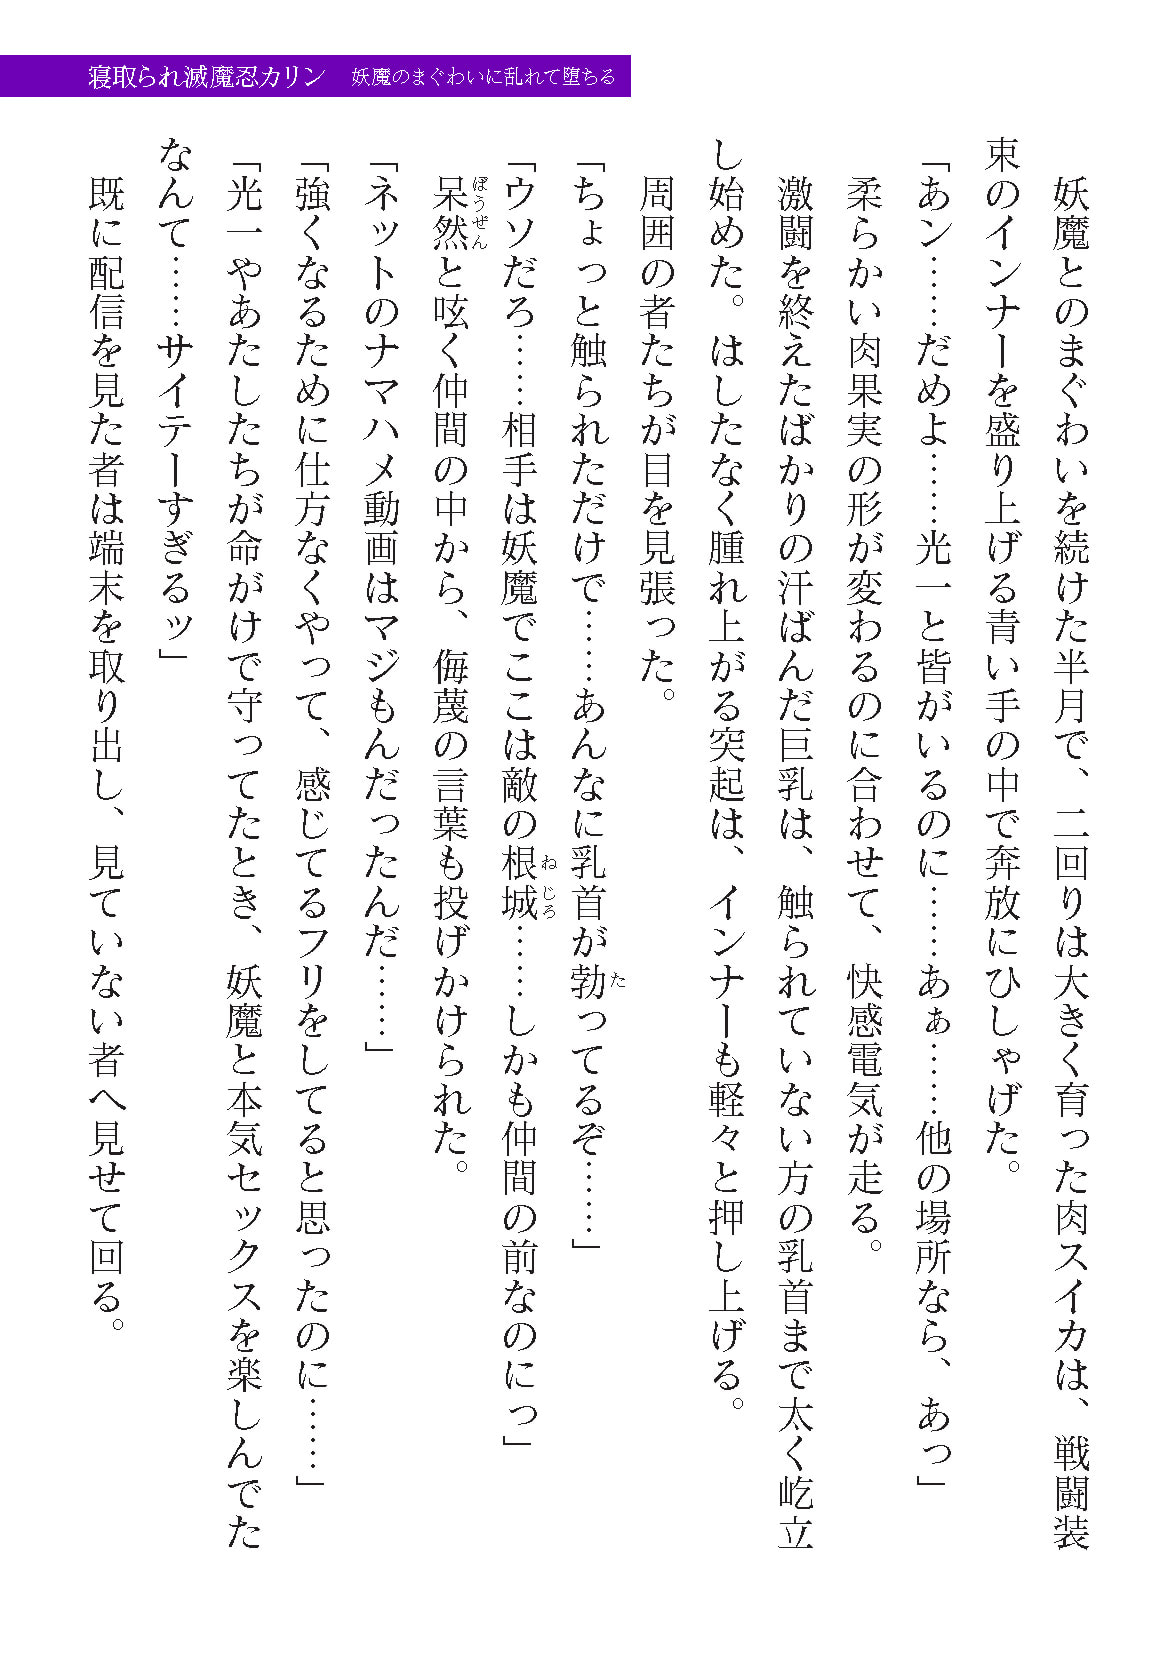 寝取られ滅魔忍カリン　妖魔のまぐわいに乱れて堕ちる
　妖魔とのまぐわいを続けた半月で、二回りは大きく育った肉スイカは、戦闘装
束のインナーを盛り上げる青い手の中で奔放にひしゃげた。
「あン……だめよ……光一と皆がいるのに……あぁ……他の場所なら、あっ」
　柔らかい肉果実の形が変わるのに合わせて、快感電気が走る。
　激闘を終えたばかりの汗ばんだ巨乳は、触られていない方の乳首まで太く屹立
し始めた。はしたなく腫れ上がる突起は、インナーも軽々と押し上げる。
　周囲の者たちが目を見張った。
「ちょっと触られただけで……あんなに乳首が勃ってるぞ……」
た
「ウソだろ……相手は妖魔でここは敵の根城……しかも仲間の前なのにっ」
ねじろ
　呆然と呟く仲間の中から、侮蔑の言葉も投げかけられた。
ぼうぜん
「ネットのナマハメ動画はマジもんだったんだ……」
「強くなるために仕方なくやって、感じてるフリをしてると思ったのに……」
「光一やあたしたちが命がけで守ってたとき、妖魔と本気セックスを楽しんでた
なんて……サイテーすぎるッ」
　既に配信を見た者は端末を取り出し、見ていない者へ見せて回る。